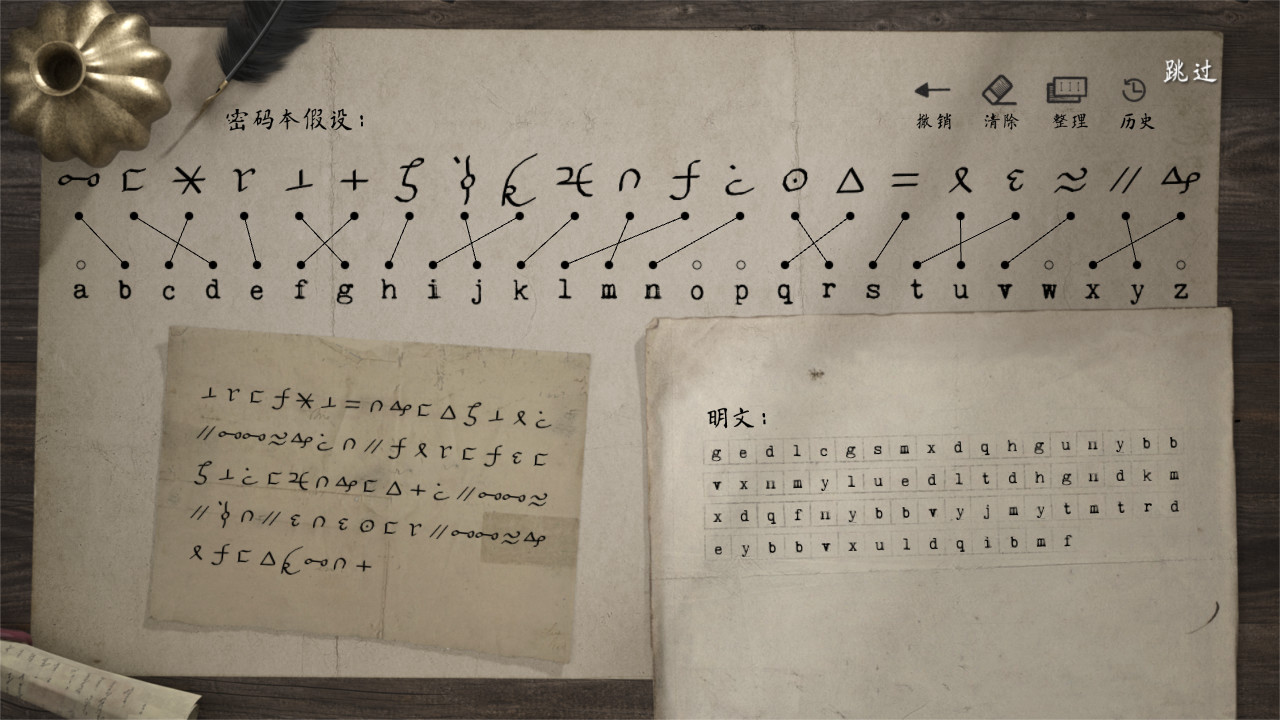 跳过
密码本假设：
撤销 清除 整理 历史
a b c d e f g h i j k l m n o p q r s t u v w x y z
明文：
g e d l c g s m x d q h g u n y b b
v x n m y l u e d l t d h g n d k m
x d q f n y b b v y j m y t m t r d
e y b b v x u l d q i b m f